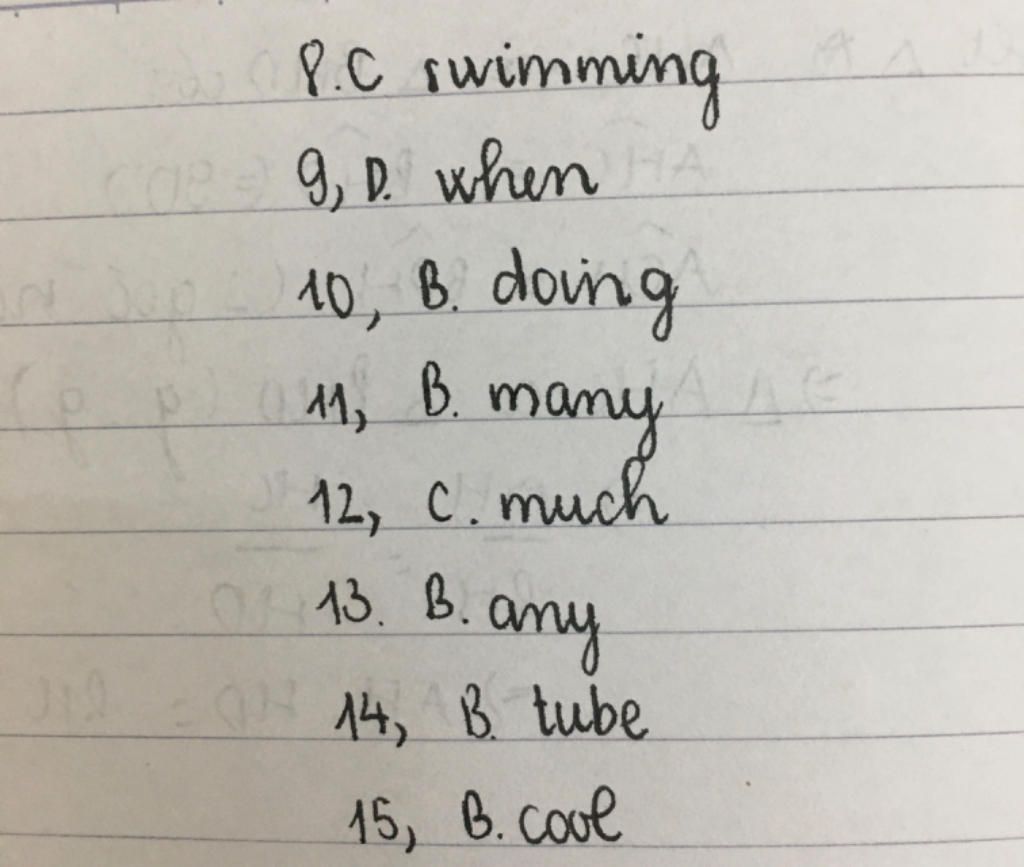 8.C swimming
9, D. when
10, B. doing
11, B. many
12, C. much
13. B. any
14, B. tube
15, B. cool